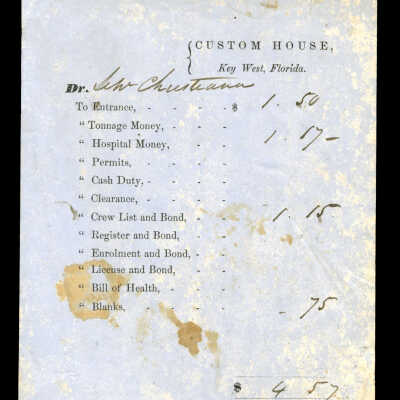 CUSTOM HOUSE,
Key West, Florida.
Dr. Schr Christiana
To Entrance, - - - - $ 1. 50
“ Tonnage Money, - - -
“ Hospital Money, - - 1. 17
“ Permits, - - - -
“ Cash Duty, - - - -
“ Clearance, - - - -
“ Crew List and Bond, - - 1. 15
“ Register and Bond, - -
“ Enrolment and Bond, - -
“ License and Bond, - -
“ Bill of Health, - - -
“ Blanks, - - - - - 75
$ 4 57